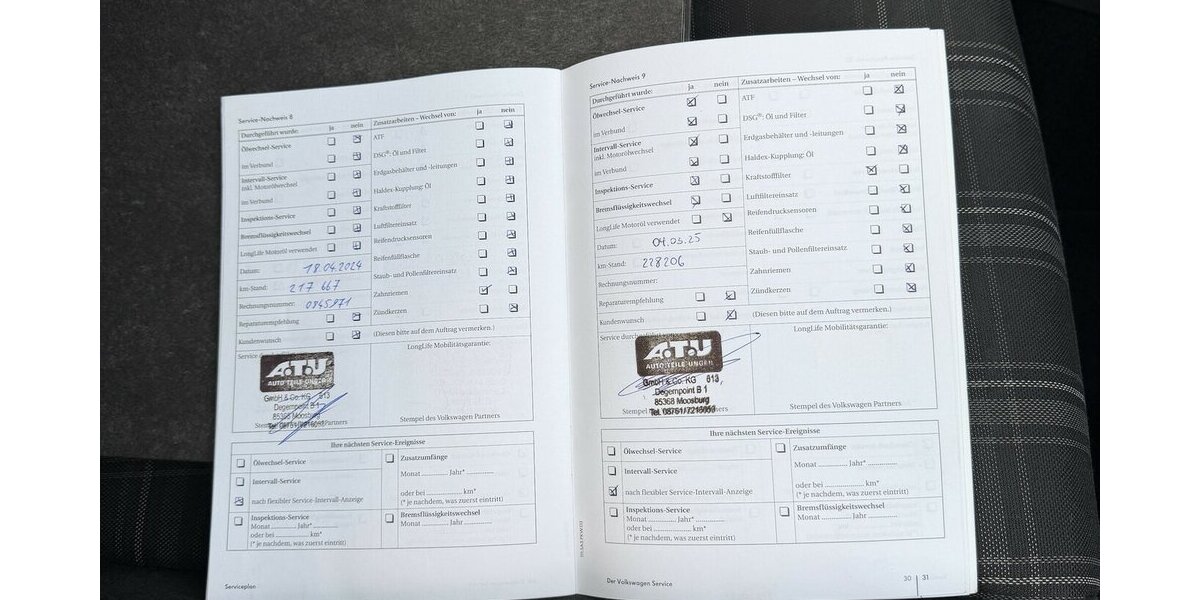 Service-Nachweis 8
Durchgeführt wurde: ja nein
Ölwechsel-Service
im Verbund
Intervall-Service
inkl. Motorölwechsel
im Verbund
Inspektions-Service
Bremsflüssigkeitswechsel
LongLife Motoröl verwendet
Datum: 18.04.2024
km-Stand: 217 667
Rechnungsnummer:
Reparaturempfehlung
Kundenwunsch
Zusatzarbeiten – Wechsel von: ja nein
ATF
DSG®: Öl und Filter
Erdgasbehälter und -leitungen
Haldex-Kupplung: Öl
Kraftstofffilter
Luftfiltereinsatz
Reifendrucksensoren
Reifenfüllflasche
Staub- und Pollenfiltereinsatz
Zahnriemen
Zündkerzen
(Diesen bitte auf dem Auftrag vermerken.)
Service
A.T.U
AUTO TEILE UNGER
GmbH & Co. KG 613
Degernpoint B 1
85368 Moosburg
LongLife Mobilitätsgarantie:
Stempel des Volkswagen Partners
Ihre nächsten Service-Ereignisse
Ölwechsel-Service
Intervall-Service
nach flexibler Service-Intervall-Anzeige
Inspektions-Service
Monat ............ Jahr* ............
oder bei .................. km*
(* je nachdem, was zuerst eintritt)
Zusatzumfänge
Monat ............ Jahr* ............
oder bei .................. km*
(* je nachdem, was zuerst eintritt)
Bremsflüssigkeitswechsel
Monat ............ Jahr ............
Serviceplan
Service-Nachweis 9
Durchgeführt wurde: ja nein
Ölwechsel-Service
im Verbund
Intervall-Service
inkl. Motorölwechsel
im Verbund
Inspektions-Service
Bremsflüssigkeitswechsel
LongLife Motoröl verwendet
Datum: 04.03.25
km-Stand: 228206
Rechnungsnummer:
Reparaturempfehlung
Kundenwunsch
Zusatzarbeiten – Wechsel von: ja nein
ATF
DSG®: Öl und Filter
Erdgasbehälter und -leitungen
Haldex-Kupplung: Öl
Kraftstofffilter
Luftfiltereinsatz
Reifendrucksensoren
Reifenfüllflasche
Staub- und Pollenfiltereinsatz
Zahnriemen
Zündkerzen
(Diesen bitte auf dem Auftrag vermerken.)
A.T.U
AUTO TEILE UNGER
GmbH & Co. KG 613
Degernpoint B 1
85368 Moosburg
LongLife Mobilitätsgarantie:
Stempel des Volkswagen Partners
Ihre nächsten Service-Ereignisse
Ölwechsel-Service
Intervall-Service
nach flexibler Service-Intervall-Anzeige
Inspektions-Service
Monat ............ Jahr* ............
oder bei .................. km*
(* je nachdem, was zuerst eintritt)
Zusatzumfänge
Monat ............ Jahr* ............
oder bei .................. km*
(* je nachdem, was zuerst eintritt)
Bremsflüssigkeitswechsel
Monat ............ Jahr ............
Der Volkswagen Service
30 31